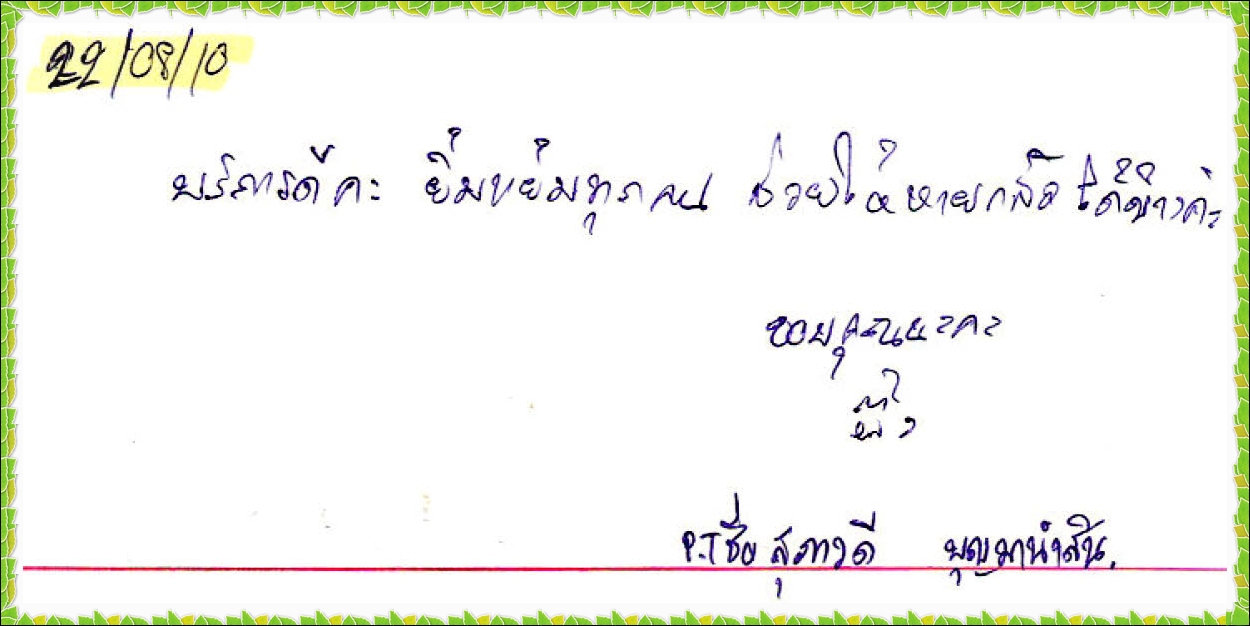 22/08/10
บริการดีคะ ยิ้มแย้มทุกคน ช่วยให้หายกลัวได้บ้างค่ะ
ขอบคุณนะคะ
P.T ชื่อ สุภาวดี บุญมานำสิน.